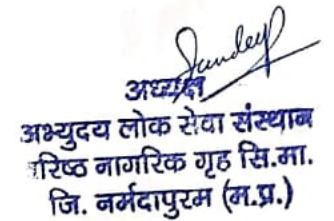 अध्यक्ष
अभ्युदय लोक सेवा संस्थान
रिष्ठ नागरिक गृह सि.मा.
जि. नर्मदापुरम (म.प्र.)